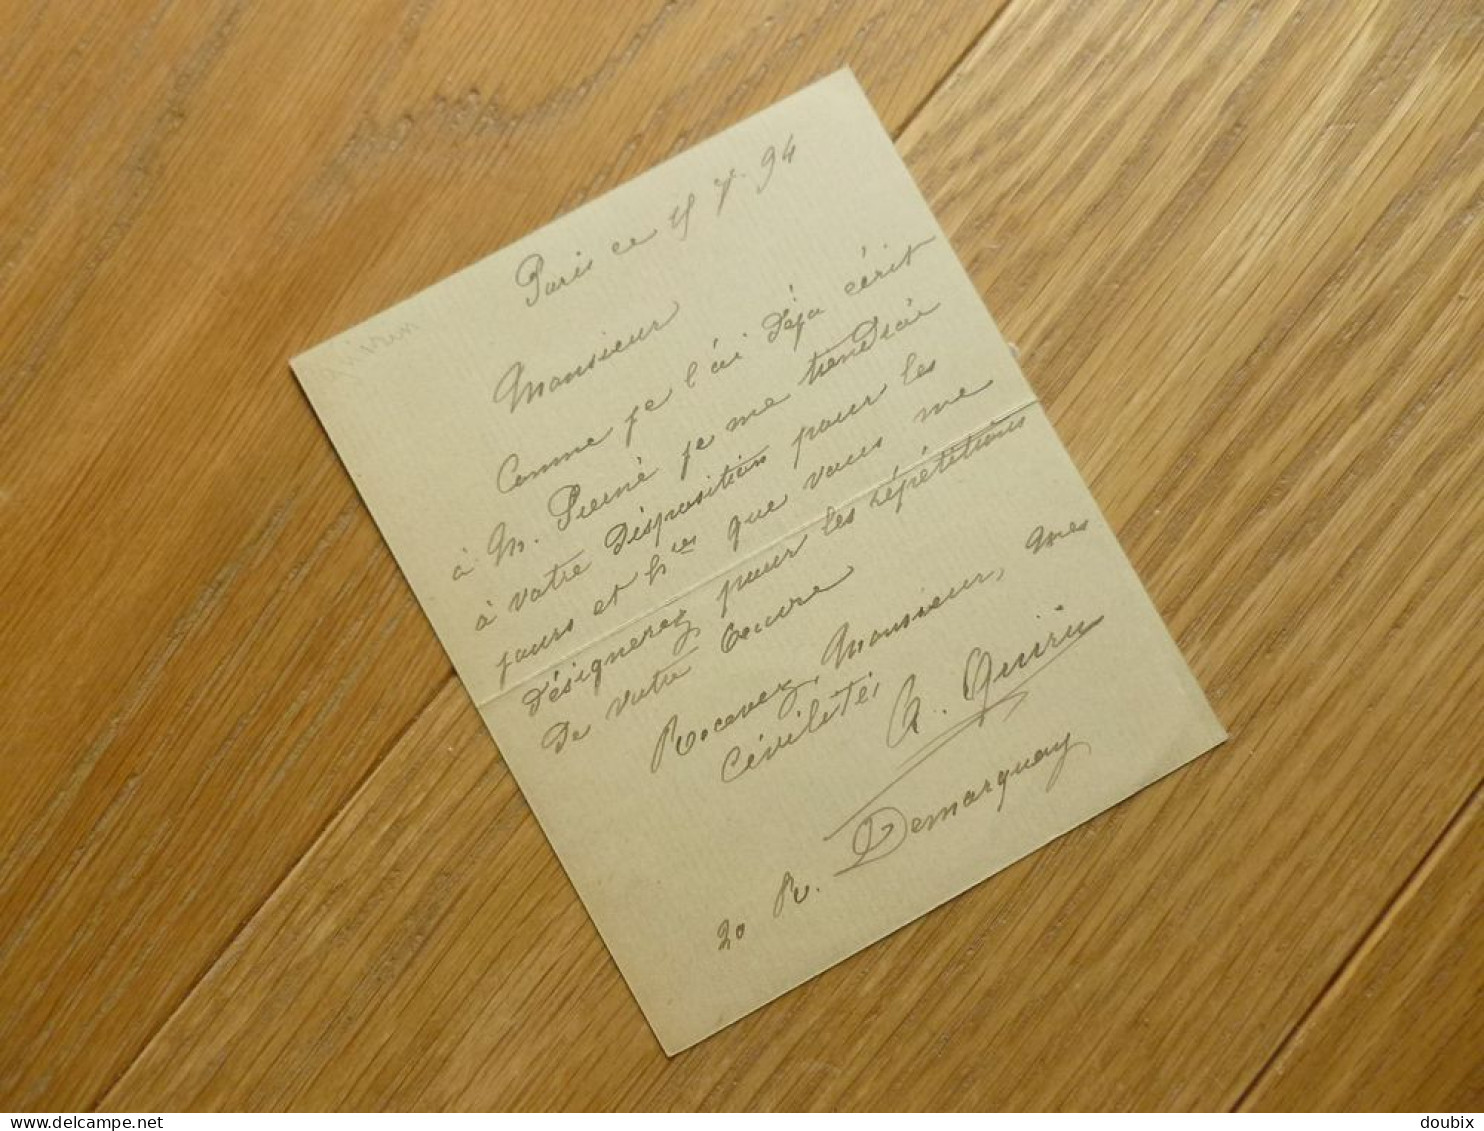 Paris ce 15 7e. 94
Monsieur
Comme je l'ai déjà écrit
à M. Pierné je me tiendrai
à votre disposition pour les
jours et hres que vous me
désignerez pour les répétitions
de votre Oeuvre
Recevez, Monsieur, mes
Civilités,
A. Quirin
20 R. Demarquay
doubix
delcampe.net